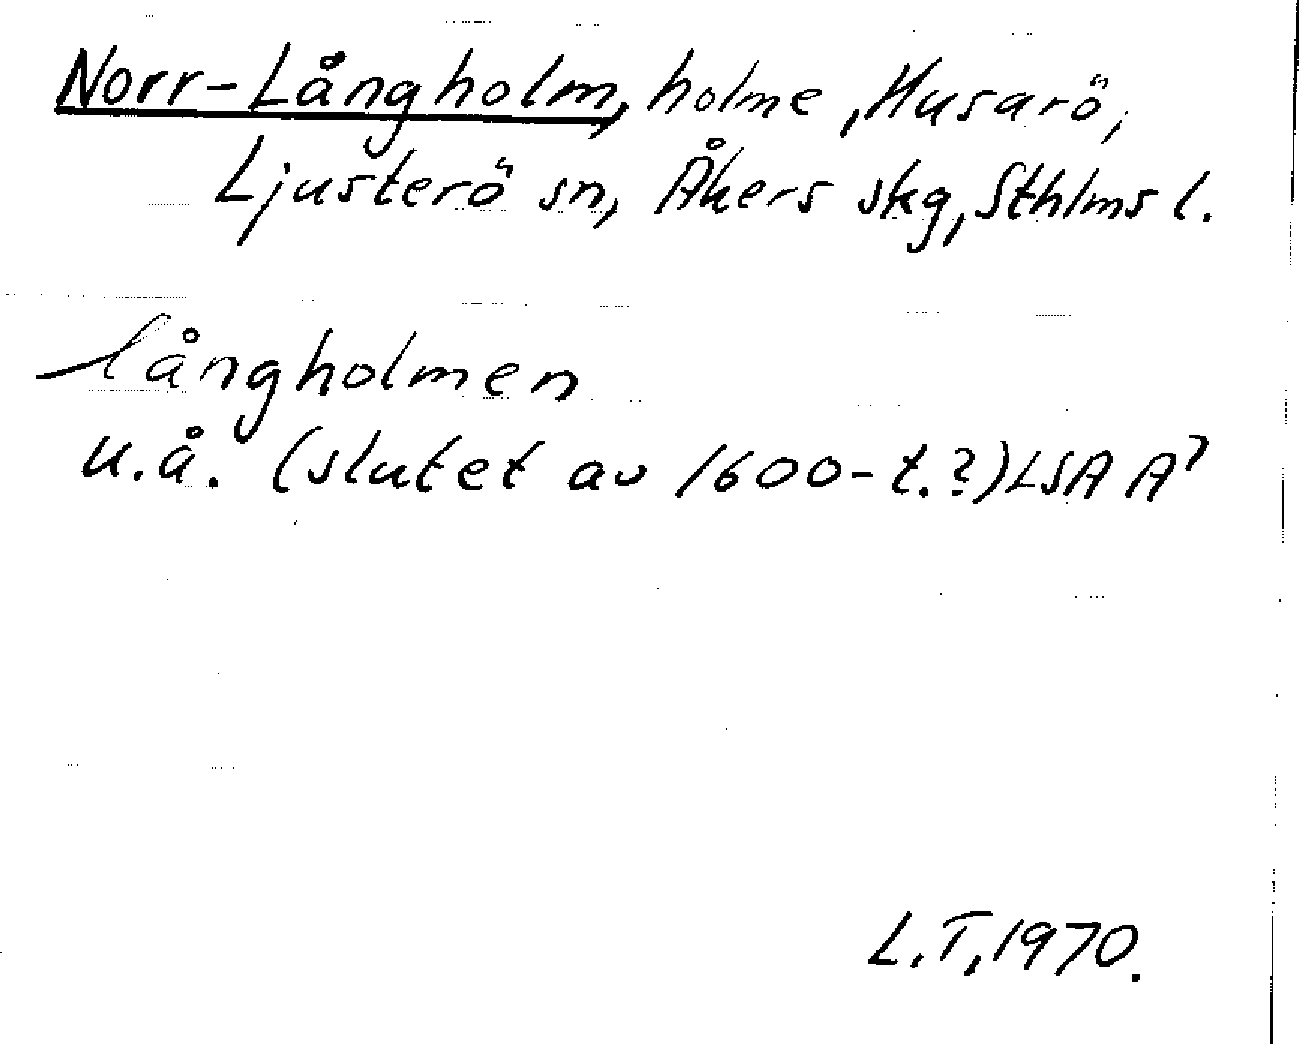 Norr-Långholm, holme, Husarö,
Ljusterö sn, Åkers skg, Sthlms l.
långholmen
u.å. (slutet av 1600-t.?) LSA A7
L.T, 1970.